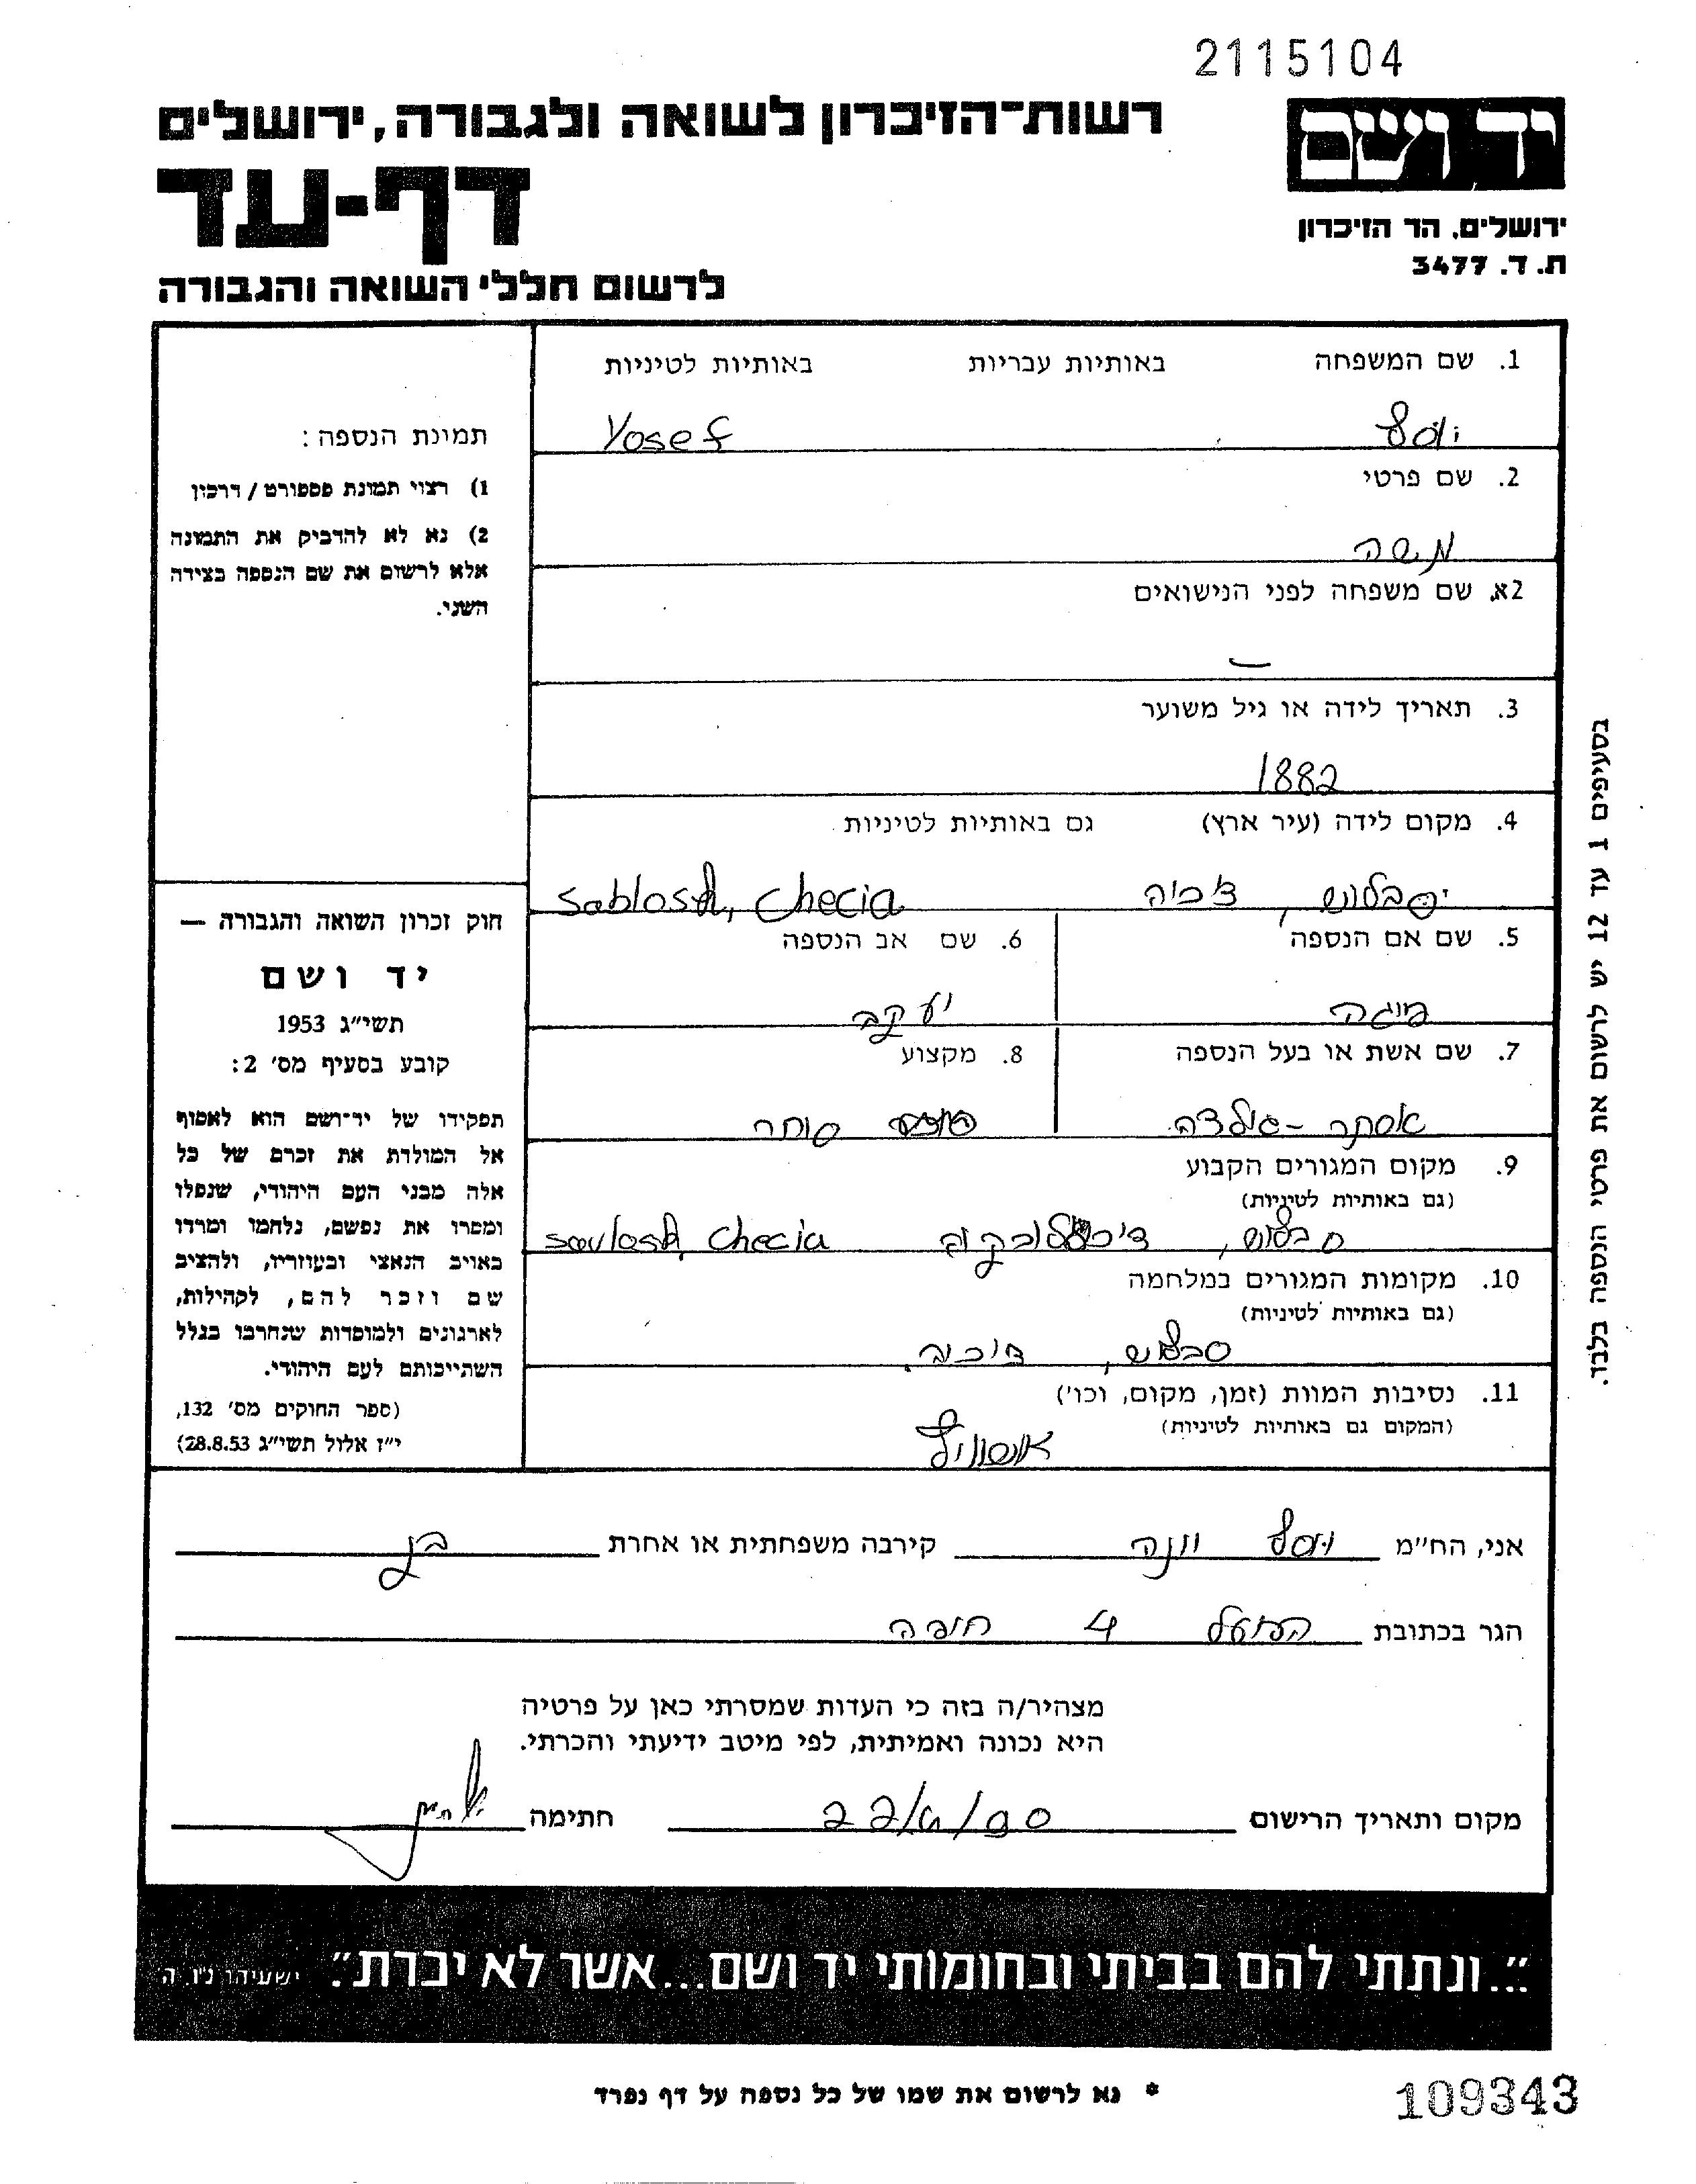 2115104
יד ושם
ירושלים, הר הזיכרון
ת. ד. 3477
רשות־הזיכרון לשואה ולגבורה, ירושלים
דף-עד
לרשום חללי השואה והגבורה
1. שם המשפחה באותיות עבריות באותיות לטיניות
יוסף Yosef
2. שם פרטי
משה
2א. שם משפחה לפני הנישואים
—
3. תאריך לידה או גיל משוער
1882
4. מקום לידה (עיר ארץ) גם באותיות לטיניות
צ'כיה Sablosh, Checia
5. שם אם הנספה 6. שם אב הנספה
יעקב
7. שם אשת או בעל הנספה 8. מקצוע
אסתר - גולדה סוחר
9. מקום המגורים הקבוע
(גם באותיות לטיניות)
סבלוש, Savlash, Checia
10. מקומות המגורים במלחמה
(גם באותיות לטיניות)
סבלוש, ציכיה
11. נסיבות המוות (זמן, מקום, וכו')
(המקום גם באותיות לטיניות)
אושוויץ
תמונת הנספה:
1) רצוי תמונת פספורט / דרכון
2) נא לא להדביק את התמונה
אלא לרשום את שם הנספה בצידה
השני.
חוק זכרון השואה והגבורה —
יד ושם
תשי"ג 1953
קובע בסעיף מס' 2:
תפקידו של יד־ושם הוא לאסוף
אל המולדת את זכרם של כל
אלה מבני העם היהודי, שנפלו
ומסרו את נפשם, נלחמו ומרדו
באויב הנאצי ובעוזריו, ולהציב
שם וזכר להם, לקהילות,
לארגונים ולמוסדות שנחרבו בגלל
השתייכותם לעם היהודי.
(ספר החוקים מס' 132,
י"ז אלול תשי"ג 28.8.53)
בסעיפים 1 עד 12 יש לרשום את פרטי הנספה בלבד.
אני, הח"מ יוסף יונה קירבה משפחתית או אחרת בן
הגר בכתובת הפועל 4 חיפה
מצהיר/ה בזה כי העדות שמסרתי כאן על פרטיה
היא נכונה ואמיתית, לפי מיטב ידיעתי והכרתי.
מקום ותאריך הרישום 22/4/90 חתימה
"...ונתתי להם בביתי ובחומותי יד ושם...אשר לא יכרת". ישעיהו נו, ה
* נא לרשום את שמו של כל נספה על דף נפרד
109343